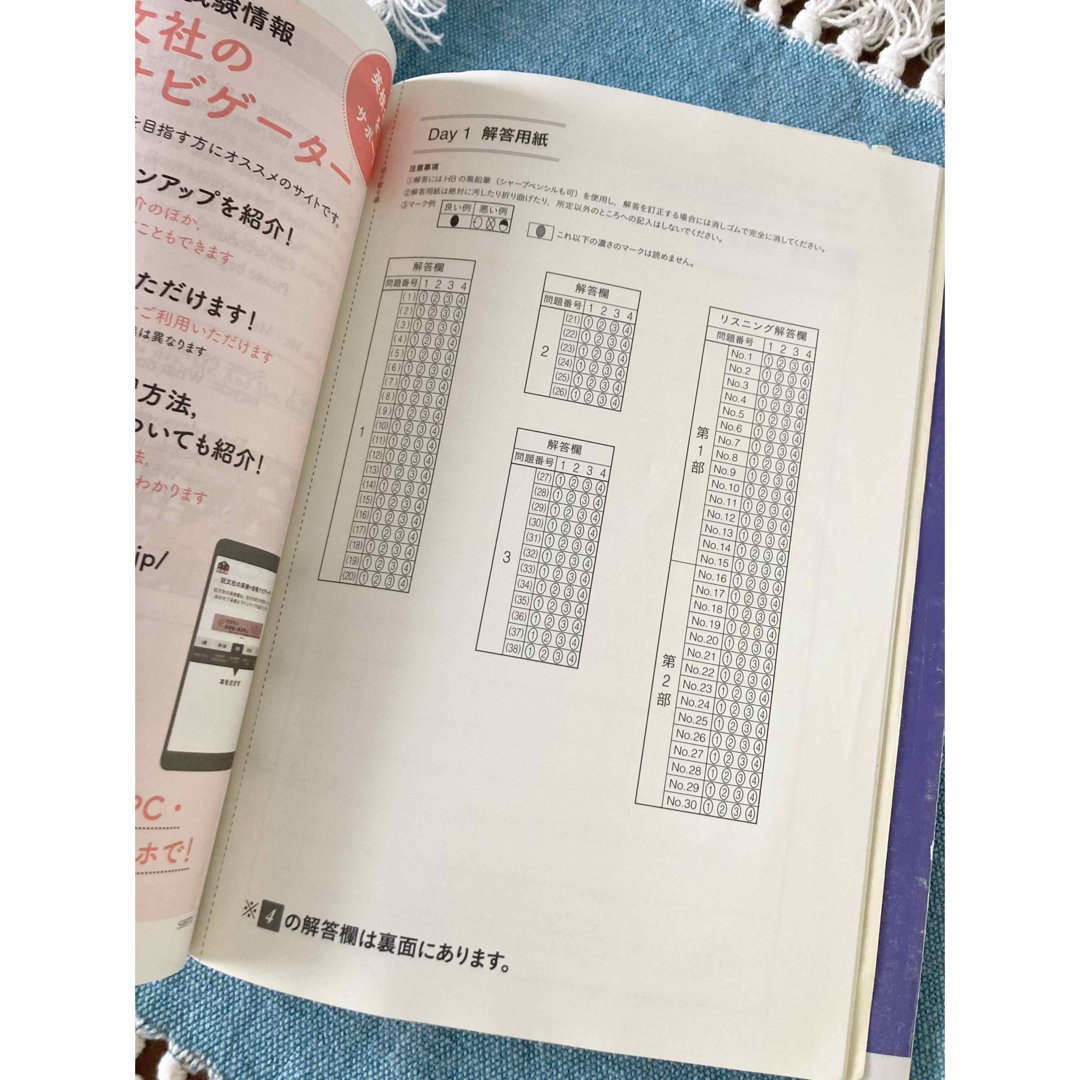 験情報
文社の
ナビゲーター
を目指す方にオススメのサイトです。
ンアップを紹介!
介のほか、
こともできます
ただけます!
ご利用いただけます
は異なります
方法,
ついても紹介!
法,
わかります
jp/
PC・
ホで!
本をさがす
Day 1 解答用紙
注意事項
①解答にはHBの黒鉛筆(シャープペンシルも可)を使用し、解答を訂正する場合には消しゴムで完全に消してください。
②解答用紙は絶対に汚したり折り曲げたり、所定以外のところへの記入はしないでください。
③マーク例
良い例 悪い例
これ以下の濃さのマークは読めません。
解答欄
問題番号 1 2 3 4
1
(1) ① ② ③ ④
(2) ① ② ③ ④
(3) ① ② ③ ④
(4) ① ② ③ ④
(5) ① ② ③ ④
(6) ① ② ③ ④
(7) ① ② ③ ④
(8) ① ② ③ ④
(9) ① ② ③ ④
(10) ① ② ③ ④
(11) ① ② ③ ④
(12) ① ② ③ ④
(13) ① ② ③ ④
(14) ① ② ③ ④
(15) ① ② ③ ④
(16) ① ② ③ ④
(17) ① ② ③ ④
(18) ① ② ③ ④
(19) ① ② ③ ④
(20) ① ② ③ ④
解答欄
問題番号 1 2 3 4
2
(21) ① ② ③ ④
(22) ① ② ③ ④
(23) ① ② ③ ④
(24) ① ② ③ ④
(25) ① ② ③ ④
(26) ① ② ③ ④
解答欄
問題番号 1 2 3 4
3
(27) ① ② ③ ④
(28) ① ② ③ ④
(29) ① ② ③ ④
(30) ① ② ③ ④
(31) ① ② ③ ④
(32) ① ② ③ ④
(33) ① ② ③ ④
(34) ① ② ③ ④
(35) ① ② ③ ④
(36) ① ② ③ ④
(37) ① ② ③ ④
(38) ① ② ③ ④
リスニング解答欄
問題番号 1 2 3 4
第1部
No.1 ① ② ③ ④
No.2 ① ② ③ ④
No.3 ① ② ③ ④
No.4 ① ② ③ ④
No.5 ① ② ③ ④
No.6 ① ② ③ ④
No.7 ① ② ③ ④
No.8 ① ② ③ ④
No.9 ① ② ③ ④
No.10 ① ② ③ ④
No.11 ① ② ③ ④
No.12 ① ② ③ ④
No.13 ① ② ③ ④
No.14 ① ② ③ ④
No.15 ① ② ③ ④
第2部
No.16 ① ② ③ ④
No.17 ① ② ③ ④
No.18 ① ② ③ ④
No.19 ① ② ③ ④
No.20 ① ② ③ ④
No.21 ① ② ③ ④
No.22 ① ② ③ ④
No.23 ① ② ③ ④
No.24 ① ② ③ ④
No.25 ① ② ③ ④
No.26 ① ② ③ ④
No.27 ① ② ③ ④
No.28 ① ② ③ ④
No.29 ① ② ③ ④
No.30 ① ② ③ ④
※4の解答欄は裏面にあります。